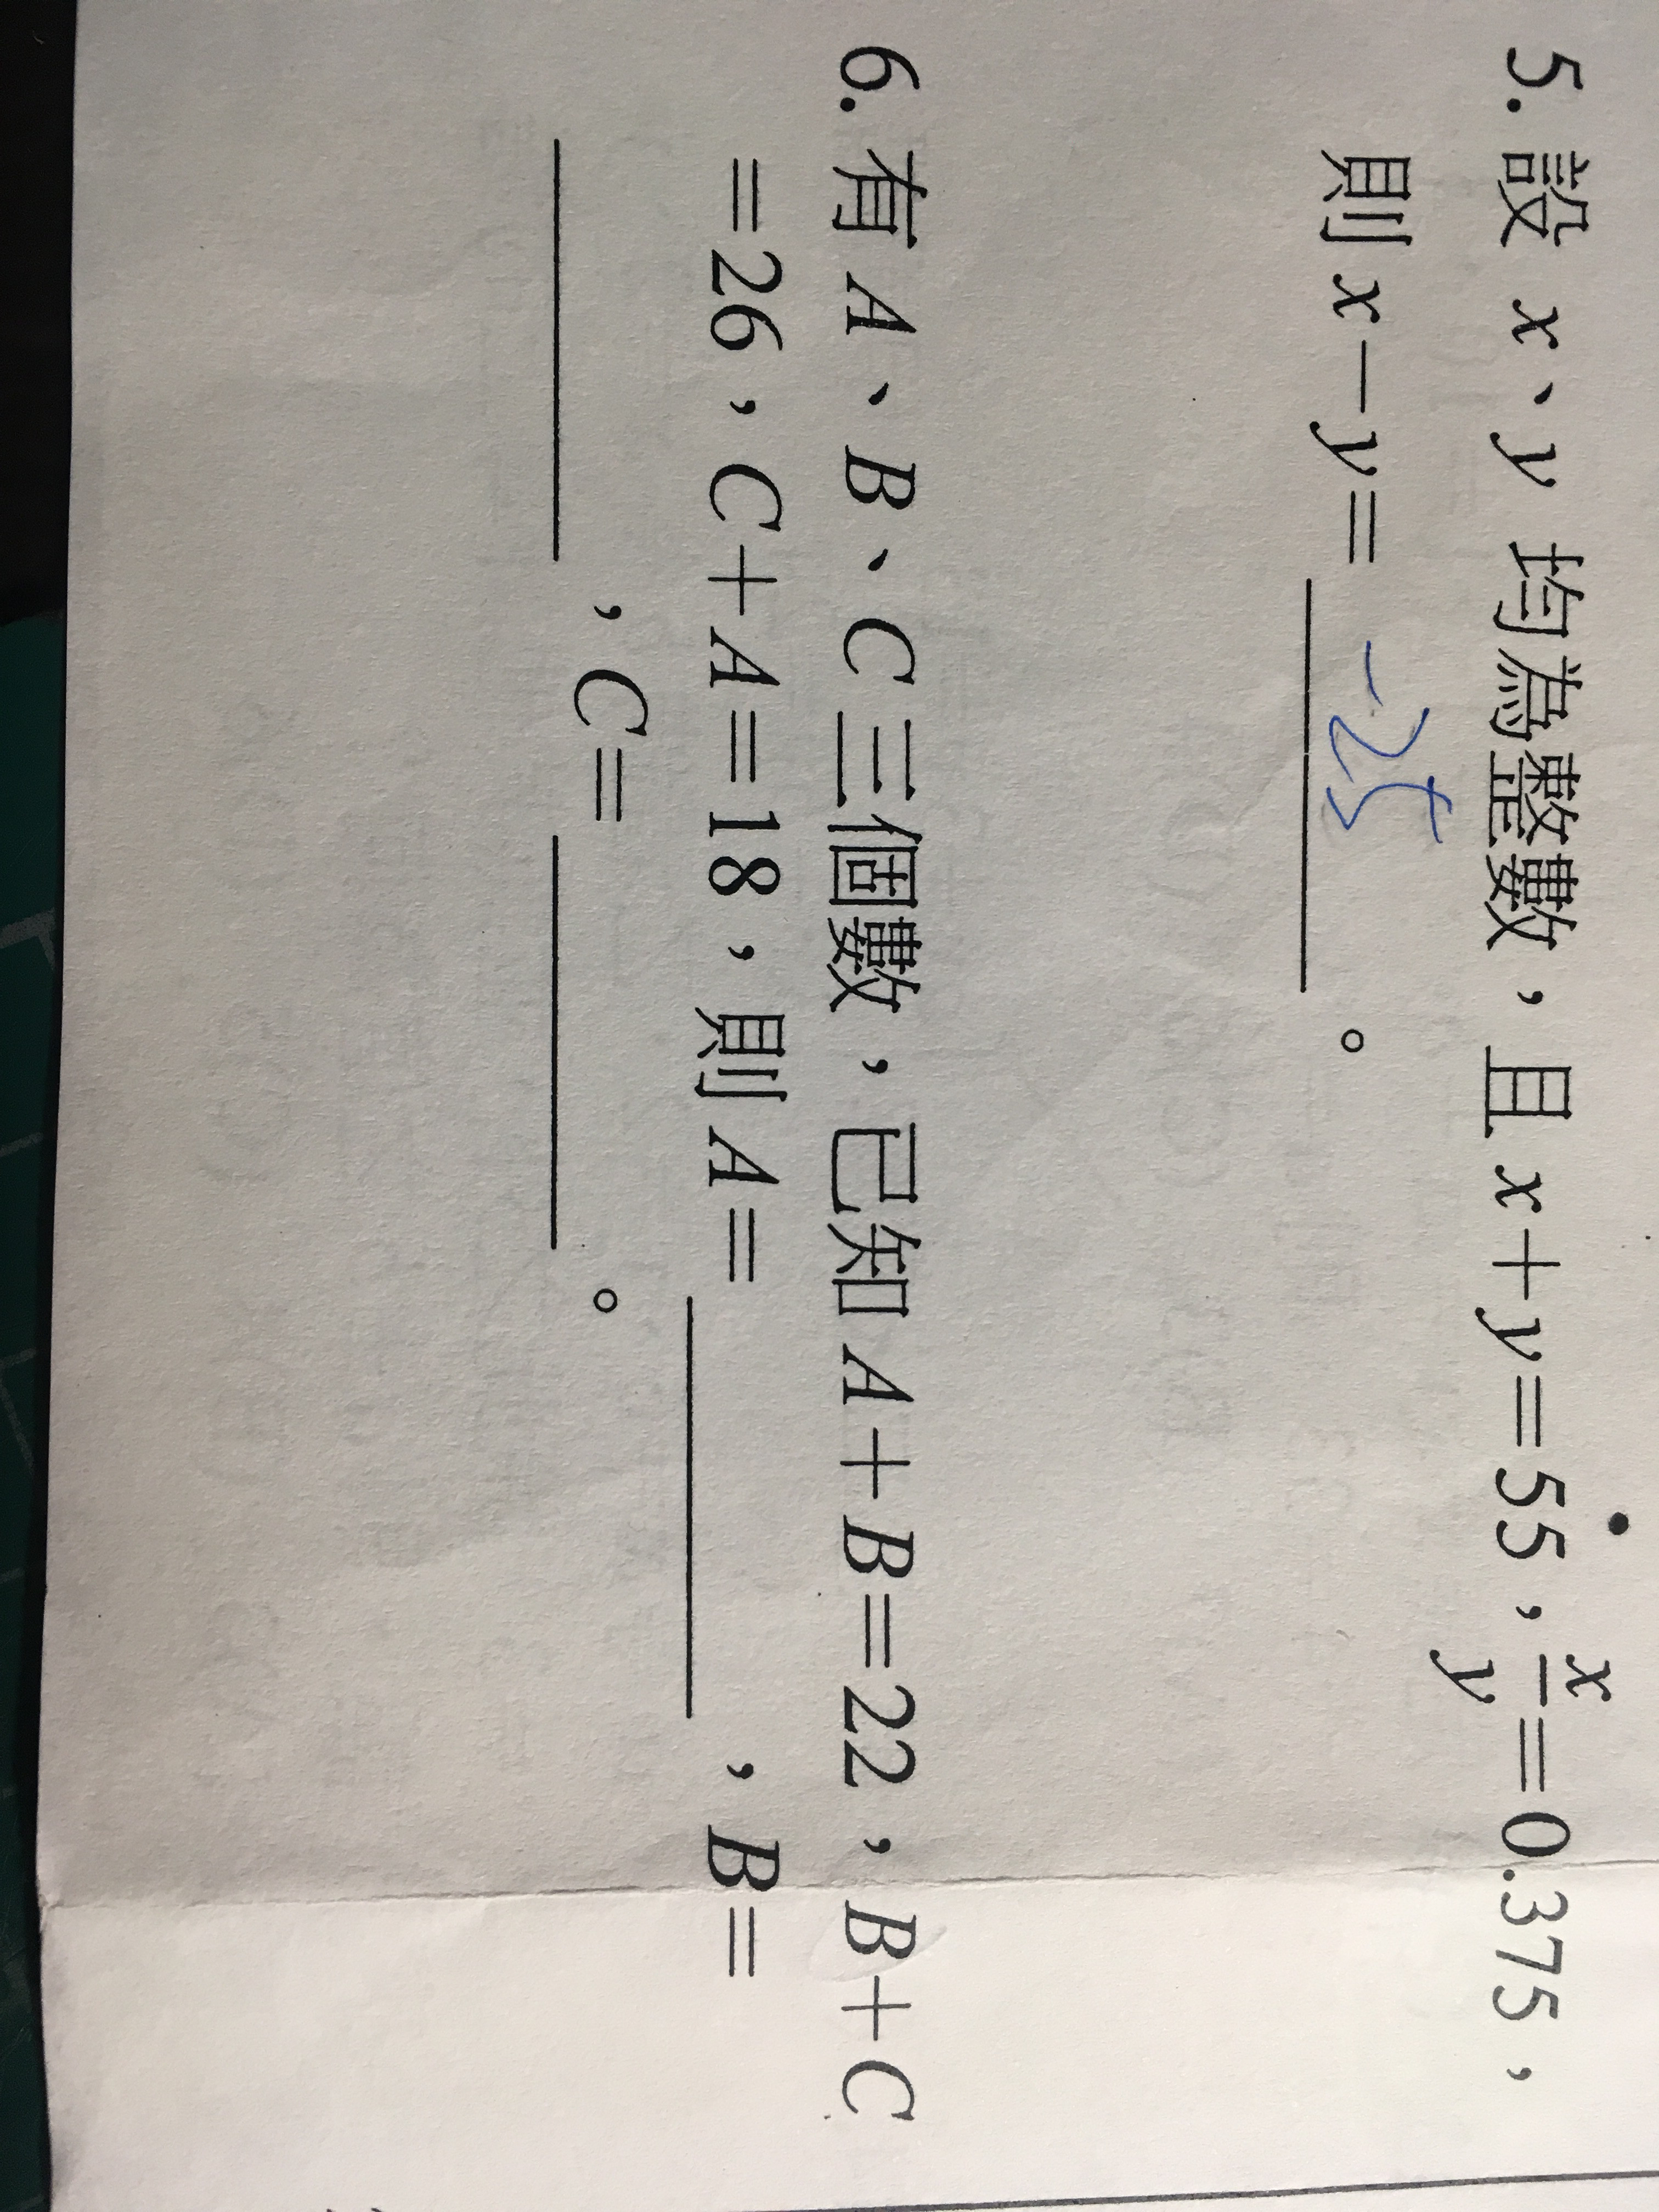 5. 設 x、y 均為整數,且 x+y=55,x/y=0.375,
則 x-y= -25 。
6. 有 A、B、C 三個數,已知 A+B=22,B+C
=26,C+A=18,則 A=______,B=
______,C=______。